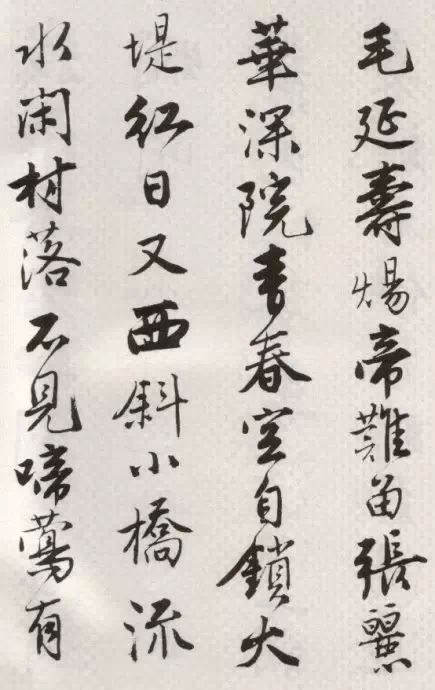 毛延壽煬帝難留張麗
華深院青春空自鎖火
堤紅日又西斜小橋流
水閑村落不見啼鶯有